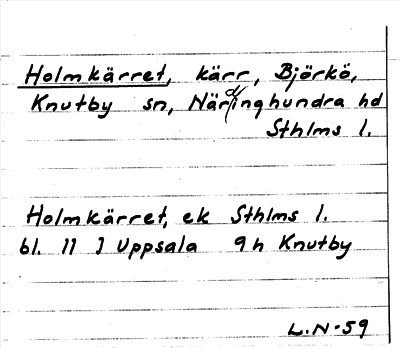 Holmkärret, kärr, Björkö,
Knutby sn, Närdinghundra hd
Sthlms l.
Holmkärret, ek Sthlms l.
bl. 11 I Uppsala 9h Knutby
L.N-59